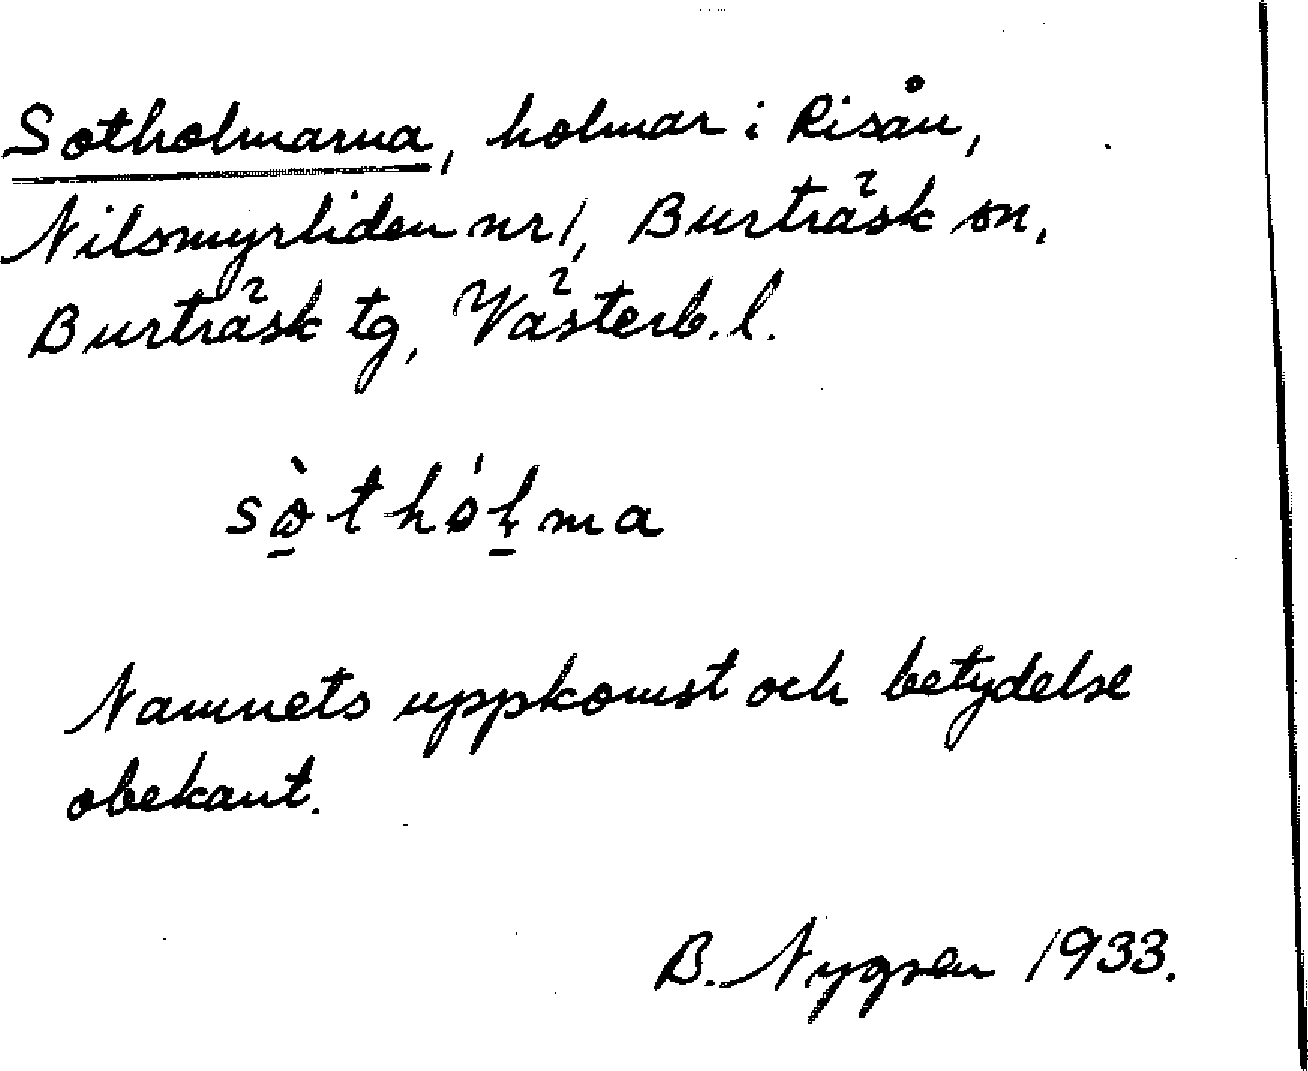 Sotholmarna, holmar i Risån,
Nilsmyrliden nr 1, Burträsk sn,
Burträsk tg, Västerb. l.
sò̱thóḻma
Namnets uppkomst och betydelse
obekant.
B. Nygren 1933.